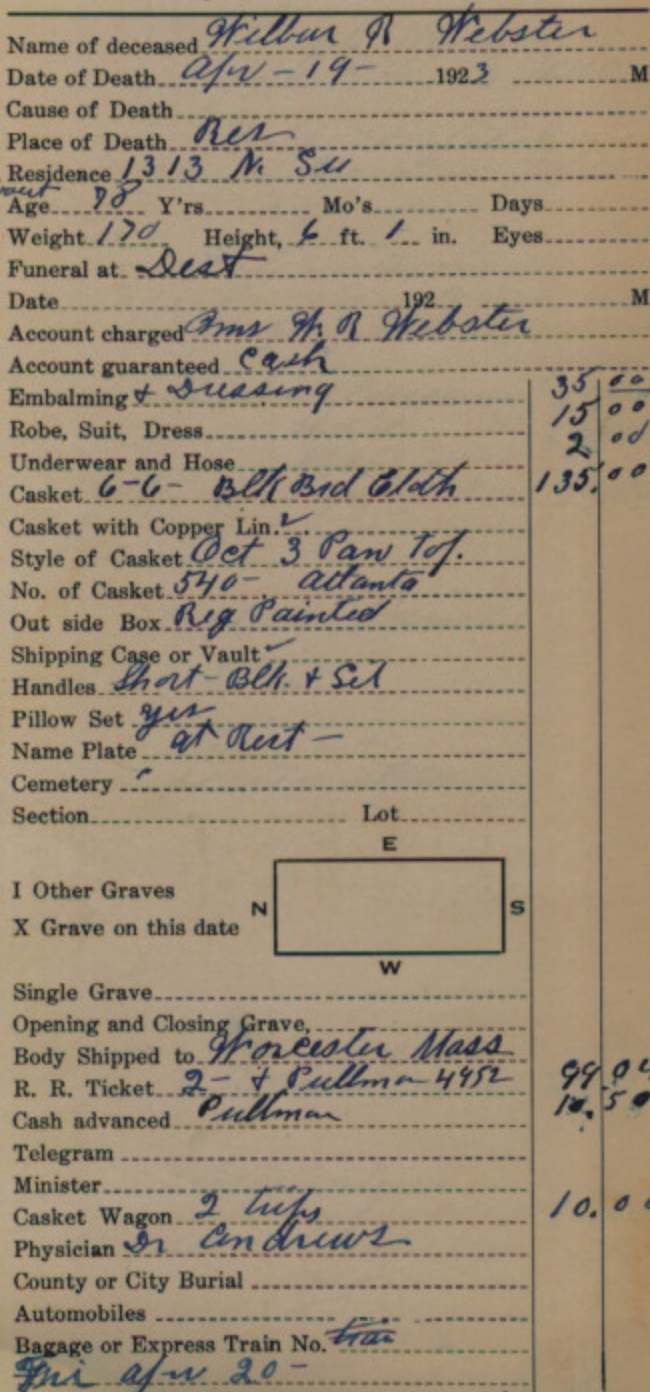 Name of deceased Wilbur R Webster
Date of Death Apr - 19 - 1923 M
Cause of Death
Place of Death Res
Residence 1313 N.
Age 78 Y'rs Mo's Days
Weight 170 Height, 6 ft. 1 in. Eyes
Funeral at Dest
Date 192 M
Account charged Mrs W. R Webster
Account guaranteed Cash
Embalming & Dressing 35 00
Robe, Suit, Dress 15 00
Underwear and Hose 2 00
Casket 6-6- Blk Brd Cloth 135.00
Casket with Copper Lin. ✓
Style of Casket Oct 3 Pan Top.
No. of Casket 540- Atlanta
Out side Box Reg Painted
Shipping Case or Vault ✓
Handles Short Blk. & Sil
Pillow Set yes
Name Plate At Rest -
Cemetery
Section Lot
E
I Other Graves
N S
X Grave on this date
W
Single Grave
Opening and Closing Grave,
Body Shipped to Worcester Mass
R. R. Ticket 2- & Pullman 4952 99.04
Cash advanced Pullman 10.50
Telegram
Minister
Casket Wagon 2 trips 10.00
Physician Dr Andrews
County or City Burial
Automobiles
Bagage or Express Train No.
Fri Apr 20 -